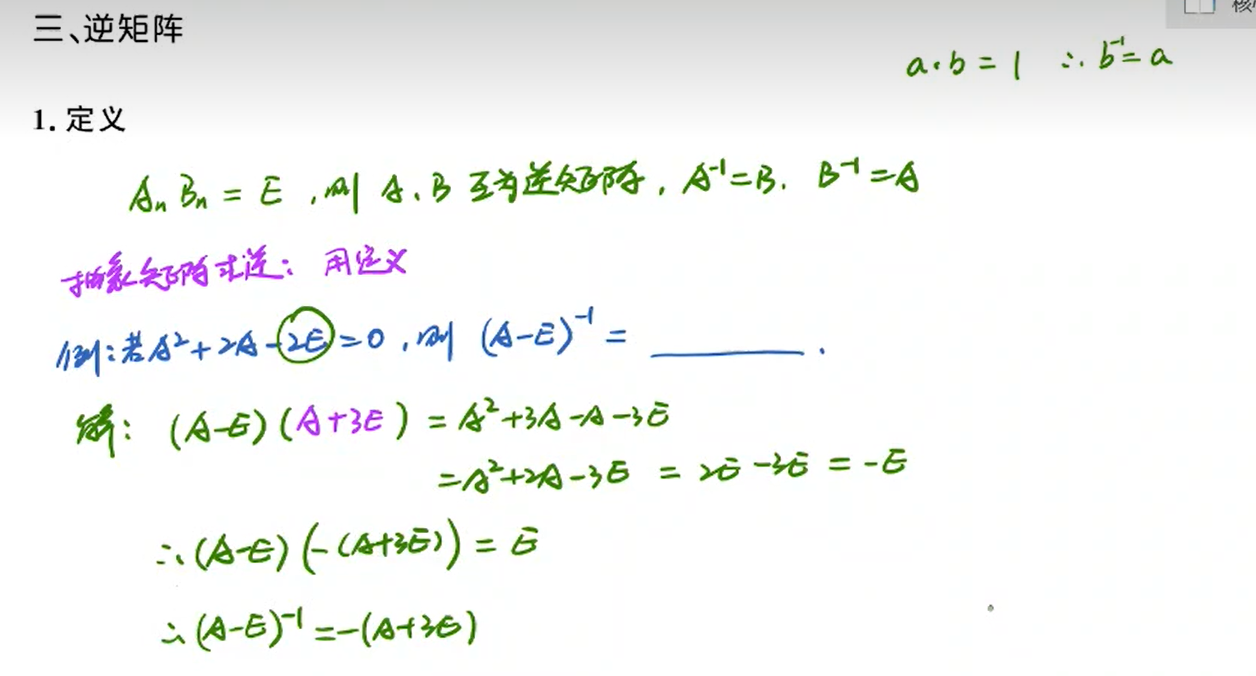 核
三、逆矩阵
a·b = 1 ∴ b⁻¹ = a
1. 定义
AₙBₙ = E , 则 A、B 互为逆矩阵 , A⁻¹=B. B⁻¹=A
抽象矩阵求逆: 用定义
例: 若 A²+2A-2E=0 , 则 (A-E)⁻¹ = ______ .
解: (A-E)(A+3E) = A²+3A-A-3E
=A²+2A-3E = 2E-3E = -E
∴ (A-E)(-(A+3E)) = E
∴ (A-E)⁻¹ =-(A+3E)